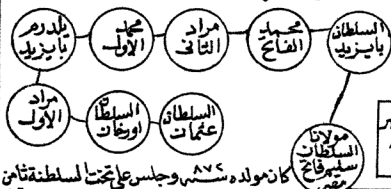 السلطان
بايزيد
محمد
الفاتح
مراد
الثانى
محمد
الاول
يلدرم
بايزيد
مراد
الاول
السلطان
اورخان
السلطان
عثمان
مولانا
السلطان
سليم فاتح
مصر
كان مولده سنه ٨٧٢ وجلس على تخت السلطنة ثامن